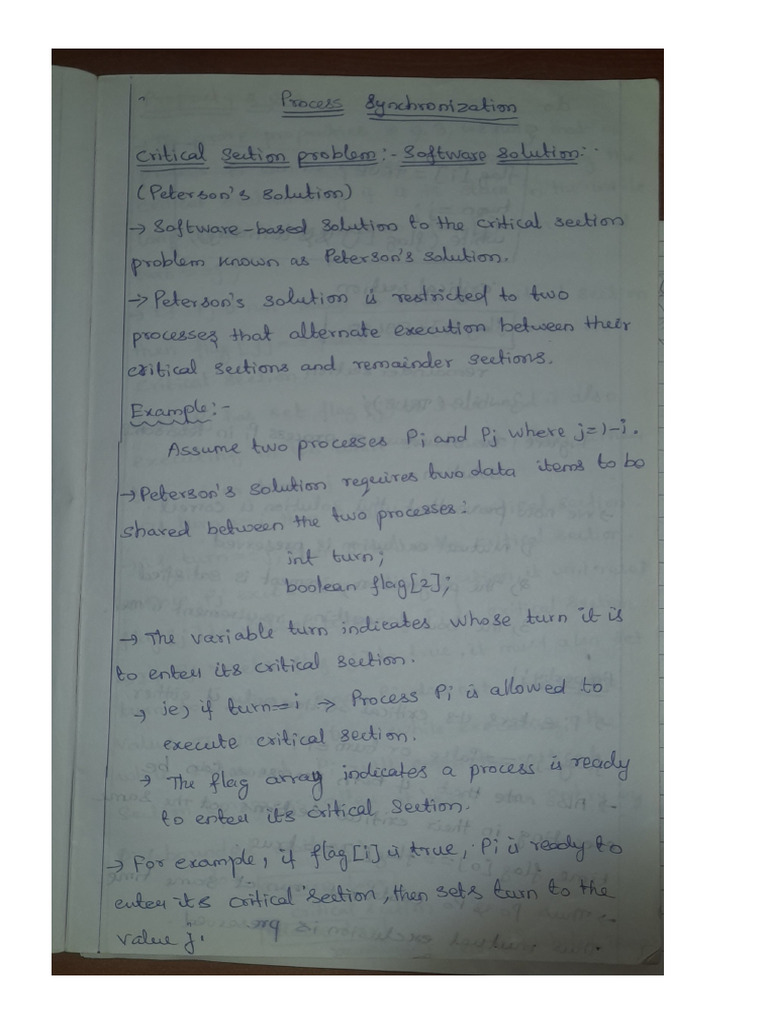 Process Synchronization
Critical Section problem:- Software Solution:-
(Peterson's Solution)
→ Software-based Solution to the critical section
problem known as Peterson's solution.
→ Peterson's Solution is restricted to two
processes that alternate execution between their
critical sections and remainder sections.
Example:-
Assume two processes Pi and Pj where j=1-i.
→ Peterson's Solution requires two data items to be
shared between the two processes:
int turn;
boolean flag[2];
→ The variable turn indicates whose turn it is
to enter its critical section.
→ ie) if turn==i → Process Pi is allowed to
execute critical section.
→ The flag array indicates a process is ready
to enter its critical section.
→ For example, if flag[i] is true, Pi is ready to
enter its critical section, then sets turn to the
value j.